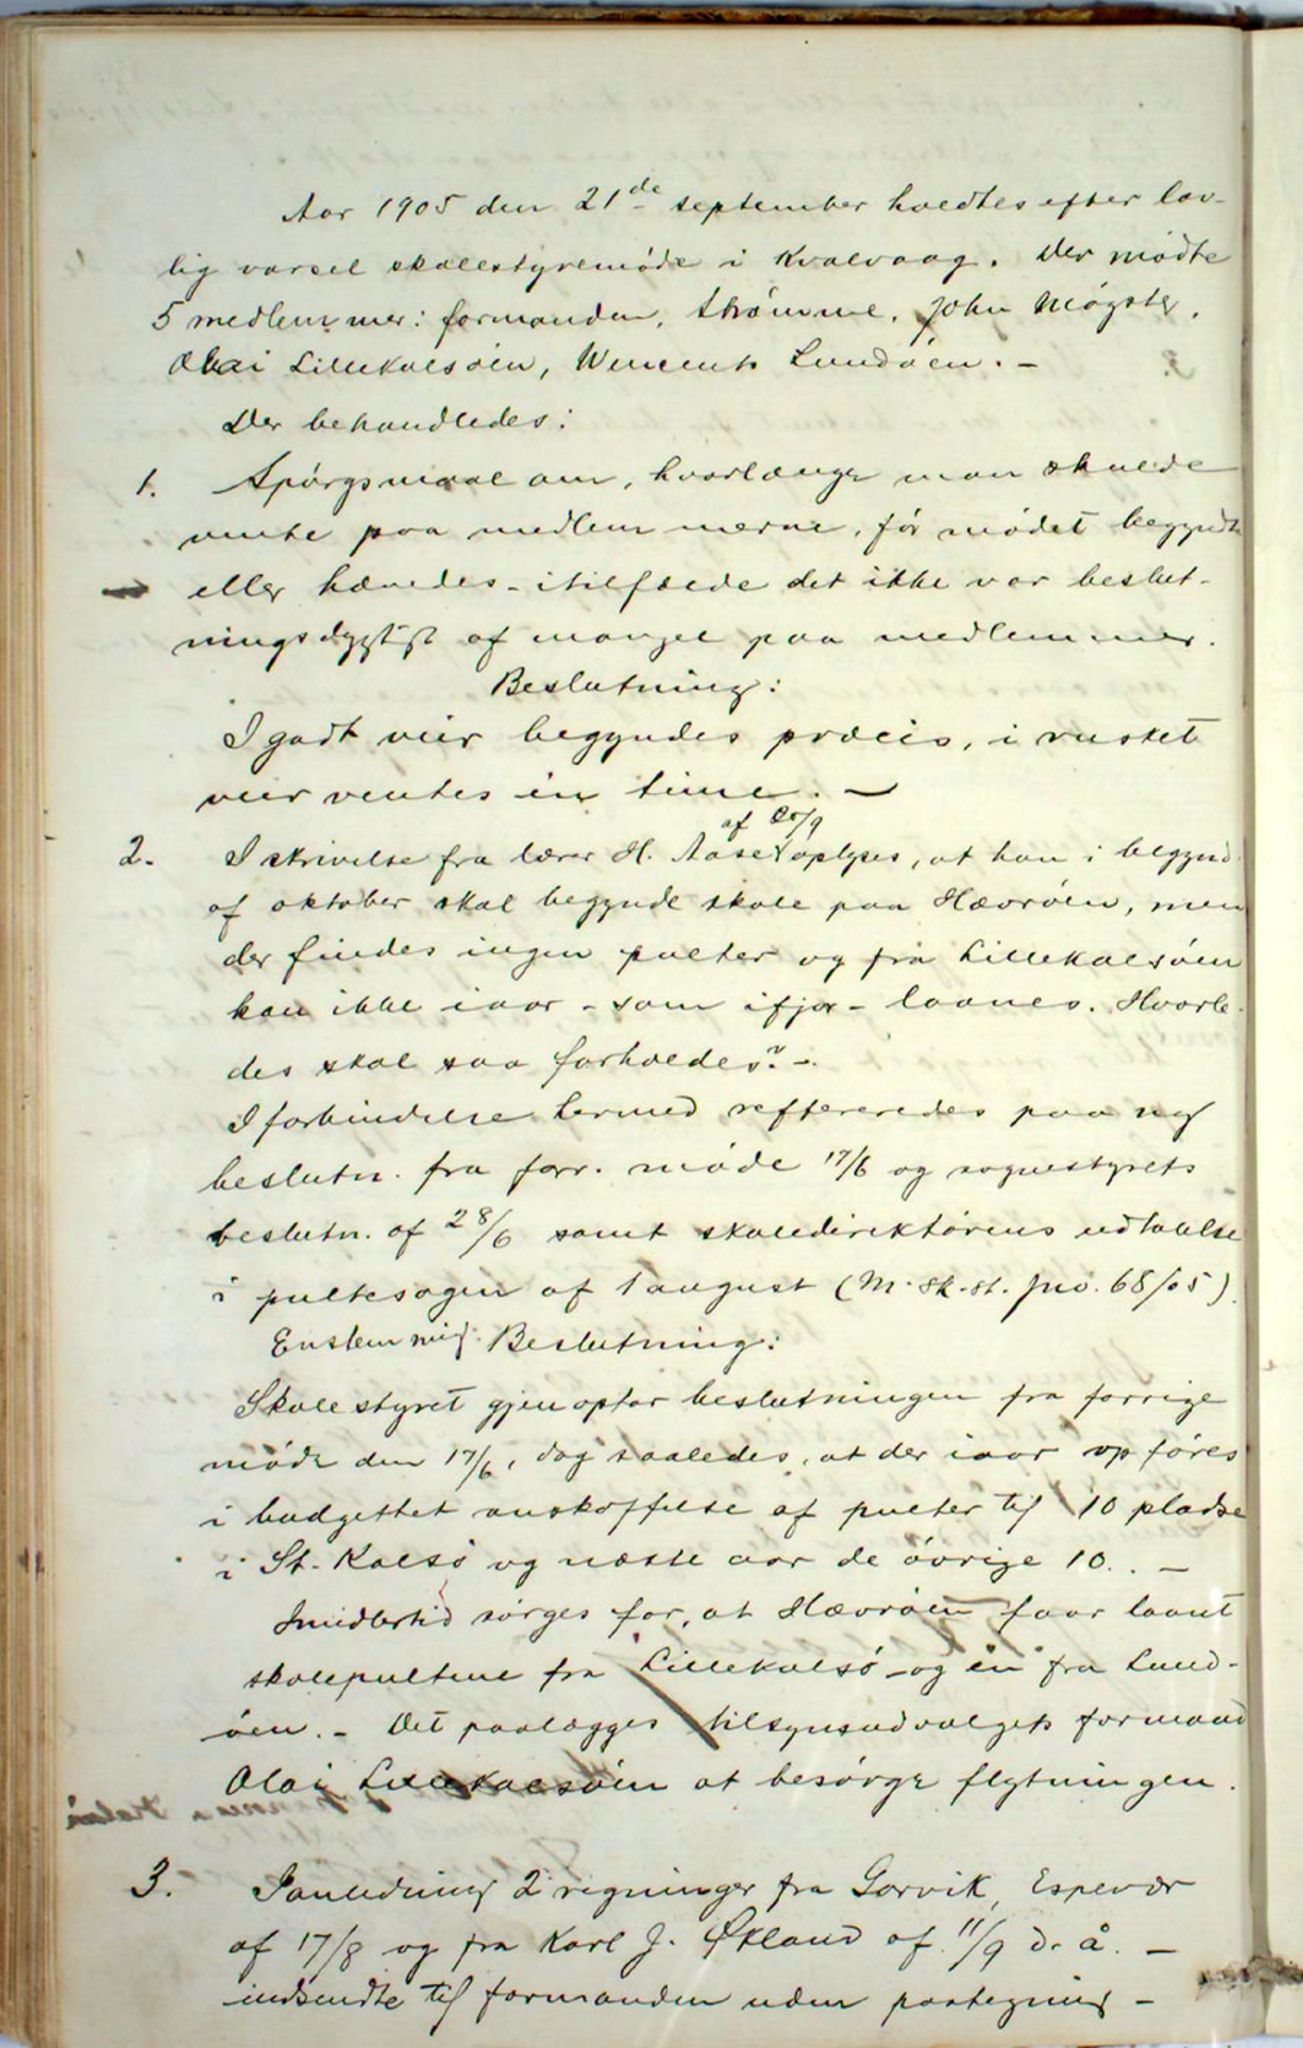 Aar 1905 den 21de september holdtes efter lov-
lig varsel skolestyremøde i Kvalvaag. Der mødte
5 medlemmer: formanden, Strømme, John Møgster,
Olai Lillekalsøen, Vincents Lundøen. -
Der behandledes:
1. Spørgsmaal om, hvorlænge man skulde
vente paa medlemmerne, før mødet begyndte
eller hævedes - itilfælde det ikke var beslut-
ningsdygtigt af mangel paa medlemmer.
Beslutning:
I godt veir begyndes præcis, i rusket
veir ventes én time. -
af 20/9
2. I skrivelse fra lærer H. Aase oplyses, at han i begynd.
af oktober skal begynde skole paa Hævrøen, men
der findes ingen pulter og fra Lillekalsøen
kan ikke iaar - som ifjor - laanes. Hvorle-
des skal saa forholdes? -
I forbindelse hermed reftereredes paa ny
beslutn. fra forr. møde 17/6 og sognestyrets
beslutn. af 28/6 samt skoledirektørens udtalelse
i pultesagen af 1 august (M. sk. st. jno. 68/05).
Enstemmig Beslutning:
Skolestyret gjenoptar beslutningen fra forrige
møde den 17/6, dog saaledes, at der iaar opføres
i budgettet anskaffelse af pulter til 10 pladse
i St. Kalsø og næste aar de øvrige 10. -
Imidlertid sørges for, at Hævrøen faar laant
skolepultene fra Lillekalsø - og én fra Lund-
øen. - Det paalægges tilsynsudvalgets formand
Olai Lillekalsøen at besørge flytningen.
3. I anledning 2 regninger fra Gorvik, Espevær
af 17/8 og fra Karl J. Økland af 11/9 d. å. -
indsendte til formanden uden paategning -